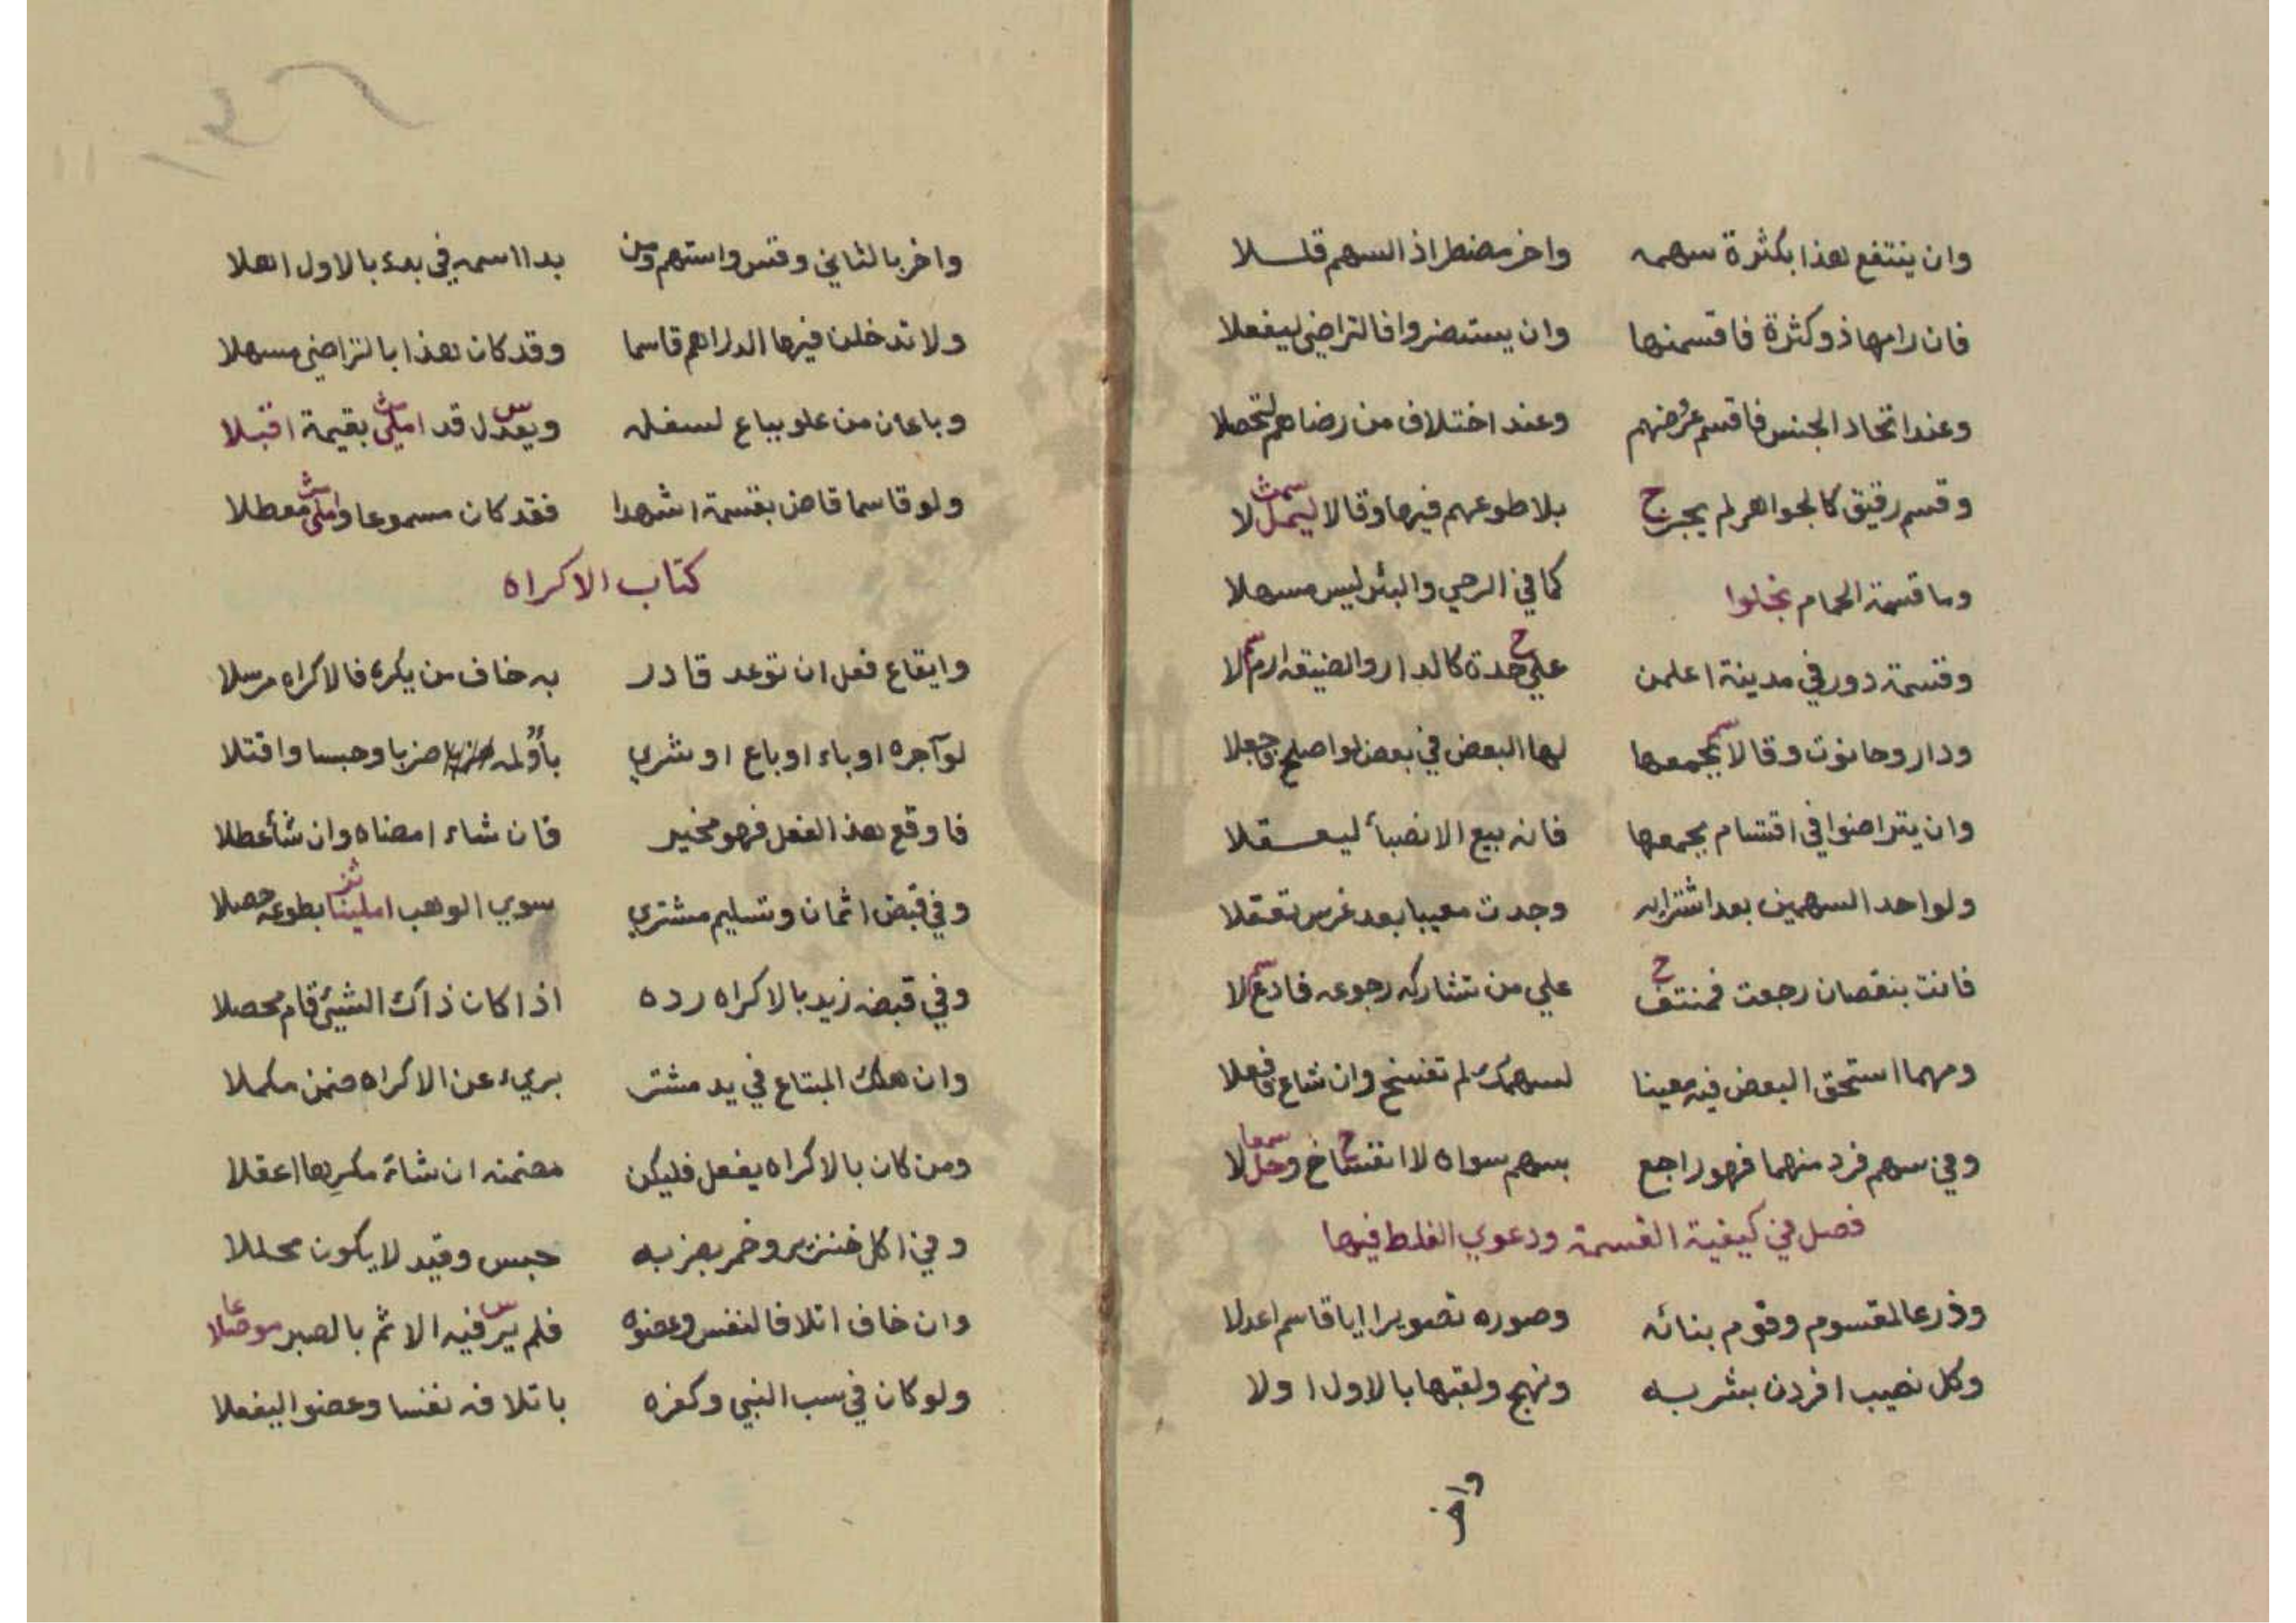 وان ينتفع هذا بكثرة سهمه واخر مضطر اذ السهم قللا
فان رامها ذو كثرة فاقسمنها وان يستضروا فالتراضي ليفعلا
وعند اتحاد الجنس فاقسم عروضهم وعند اختلاف من رضاهم لتحصلا
وقسم رقيق كالجواهر لم يجز ح بلا طوعهم فيها وقالا ليمل لا
وما قسمة الحمام كما في الرحي والبئر ليس مسهلا
وقسمة دور في مدينة اعلمن علي حدة كالدار والضيقه لا
ودار وحانوت وقالا بجمعها لها البعض في بعض لو اصلح جعلا
وان يتراضوا في اقتسام بجمعها فانه بيع الانصبأ ليعقلا
ولو احد السهمين بعد اشترايه وجدت معيبا بعد غرس تعقلا
فانت بنقصان رجعت فمنتف ح علي من تشاركه رجوعه فادع لا
ومهما استحق البعض فيه معينا لسهمك لم تفسخ وان شاع فافعلا
وفي سهم فرد منهما فهو راجع بسهم سواه لا انفساخ وحل لا
فصل في كيفية القسمة ودعوي الغلط فيها
وذرعا لمقسوم وقوم بنائه وصوره تصويرا ايا قاسم اعدلا
وكل نصيب افردن بشربه ونهج ولقبها بالاول اولا
واخر
واخر بالثاني وقس واستهم ومن بدا اسمه في بدء بالاول اهلا
ولا تدخلن فيها الدراهم قاسما وقد كان هذا بالتراضي مسهلا
وباعان من علو بباع لسفله ويعدل قد املى بقيمة اقبلا
ولو قاسما قاض بقسمة اشهدا فقد كان مسموعا واملى معطلا
كتاب الاكراه
وايقاع فعل ان توعد قادر به خاف من يكره فالاكراه مرسلا
لو آجره او باء او باع او شري بأوله ضربا وحبسا واقتلا
فاوقع هذا الفعل فهو مخير فان شاء امضاه وان شأ عطلا
وفي قبض اثمان وتسليم مشتري سوي الوهب املينا بطوعه حصلا
وفي قبضه زيد بالاكراه رده اذا كان ذاك الشيئ قام محصلا
وان هلك المبتاع في يد مشتر بريء عن الاكراه ضمن مكملا
ومن كان بالاكراه يفعل فليكن مضمنه ان شاء مكرها اعقلا
وفي اكل خنزير وخمر بضربه حبس وقيد لا يكون محللا
وان خاف اتلافا لنفس وعضوه فلم ير فيه الاثم بالصبر موصلا
ولو كان في سب النبي وكفره باتلافه نفسا وعضوا ليفعلا